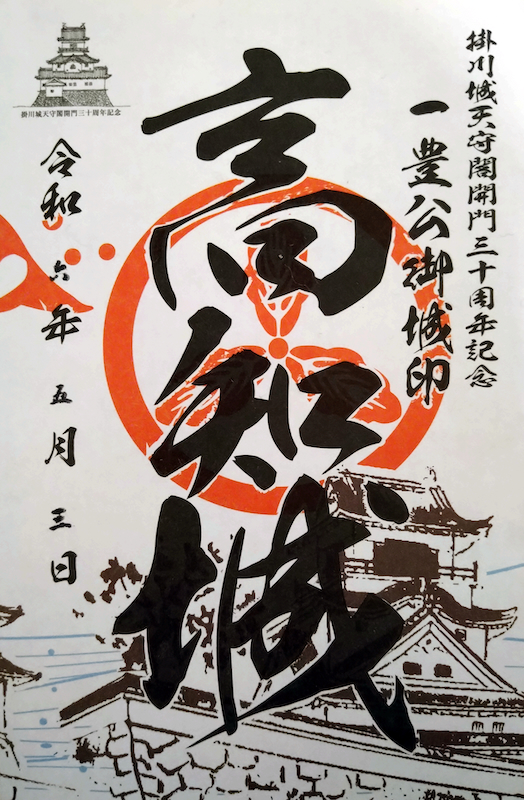 掛川城天守閣開門三十周年記念
一豊公御城印
高知城
掛川城天守閣開門三十周年記念
令和六年五月三日